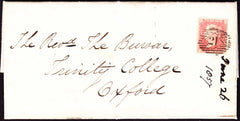 The Revd. The Bursar,
Trinity College
Oxford
June 26